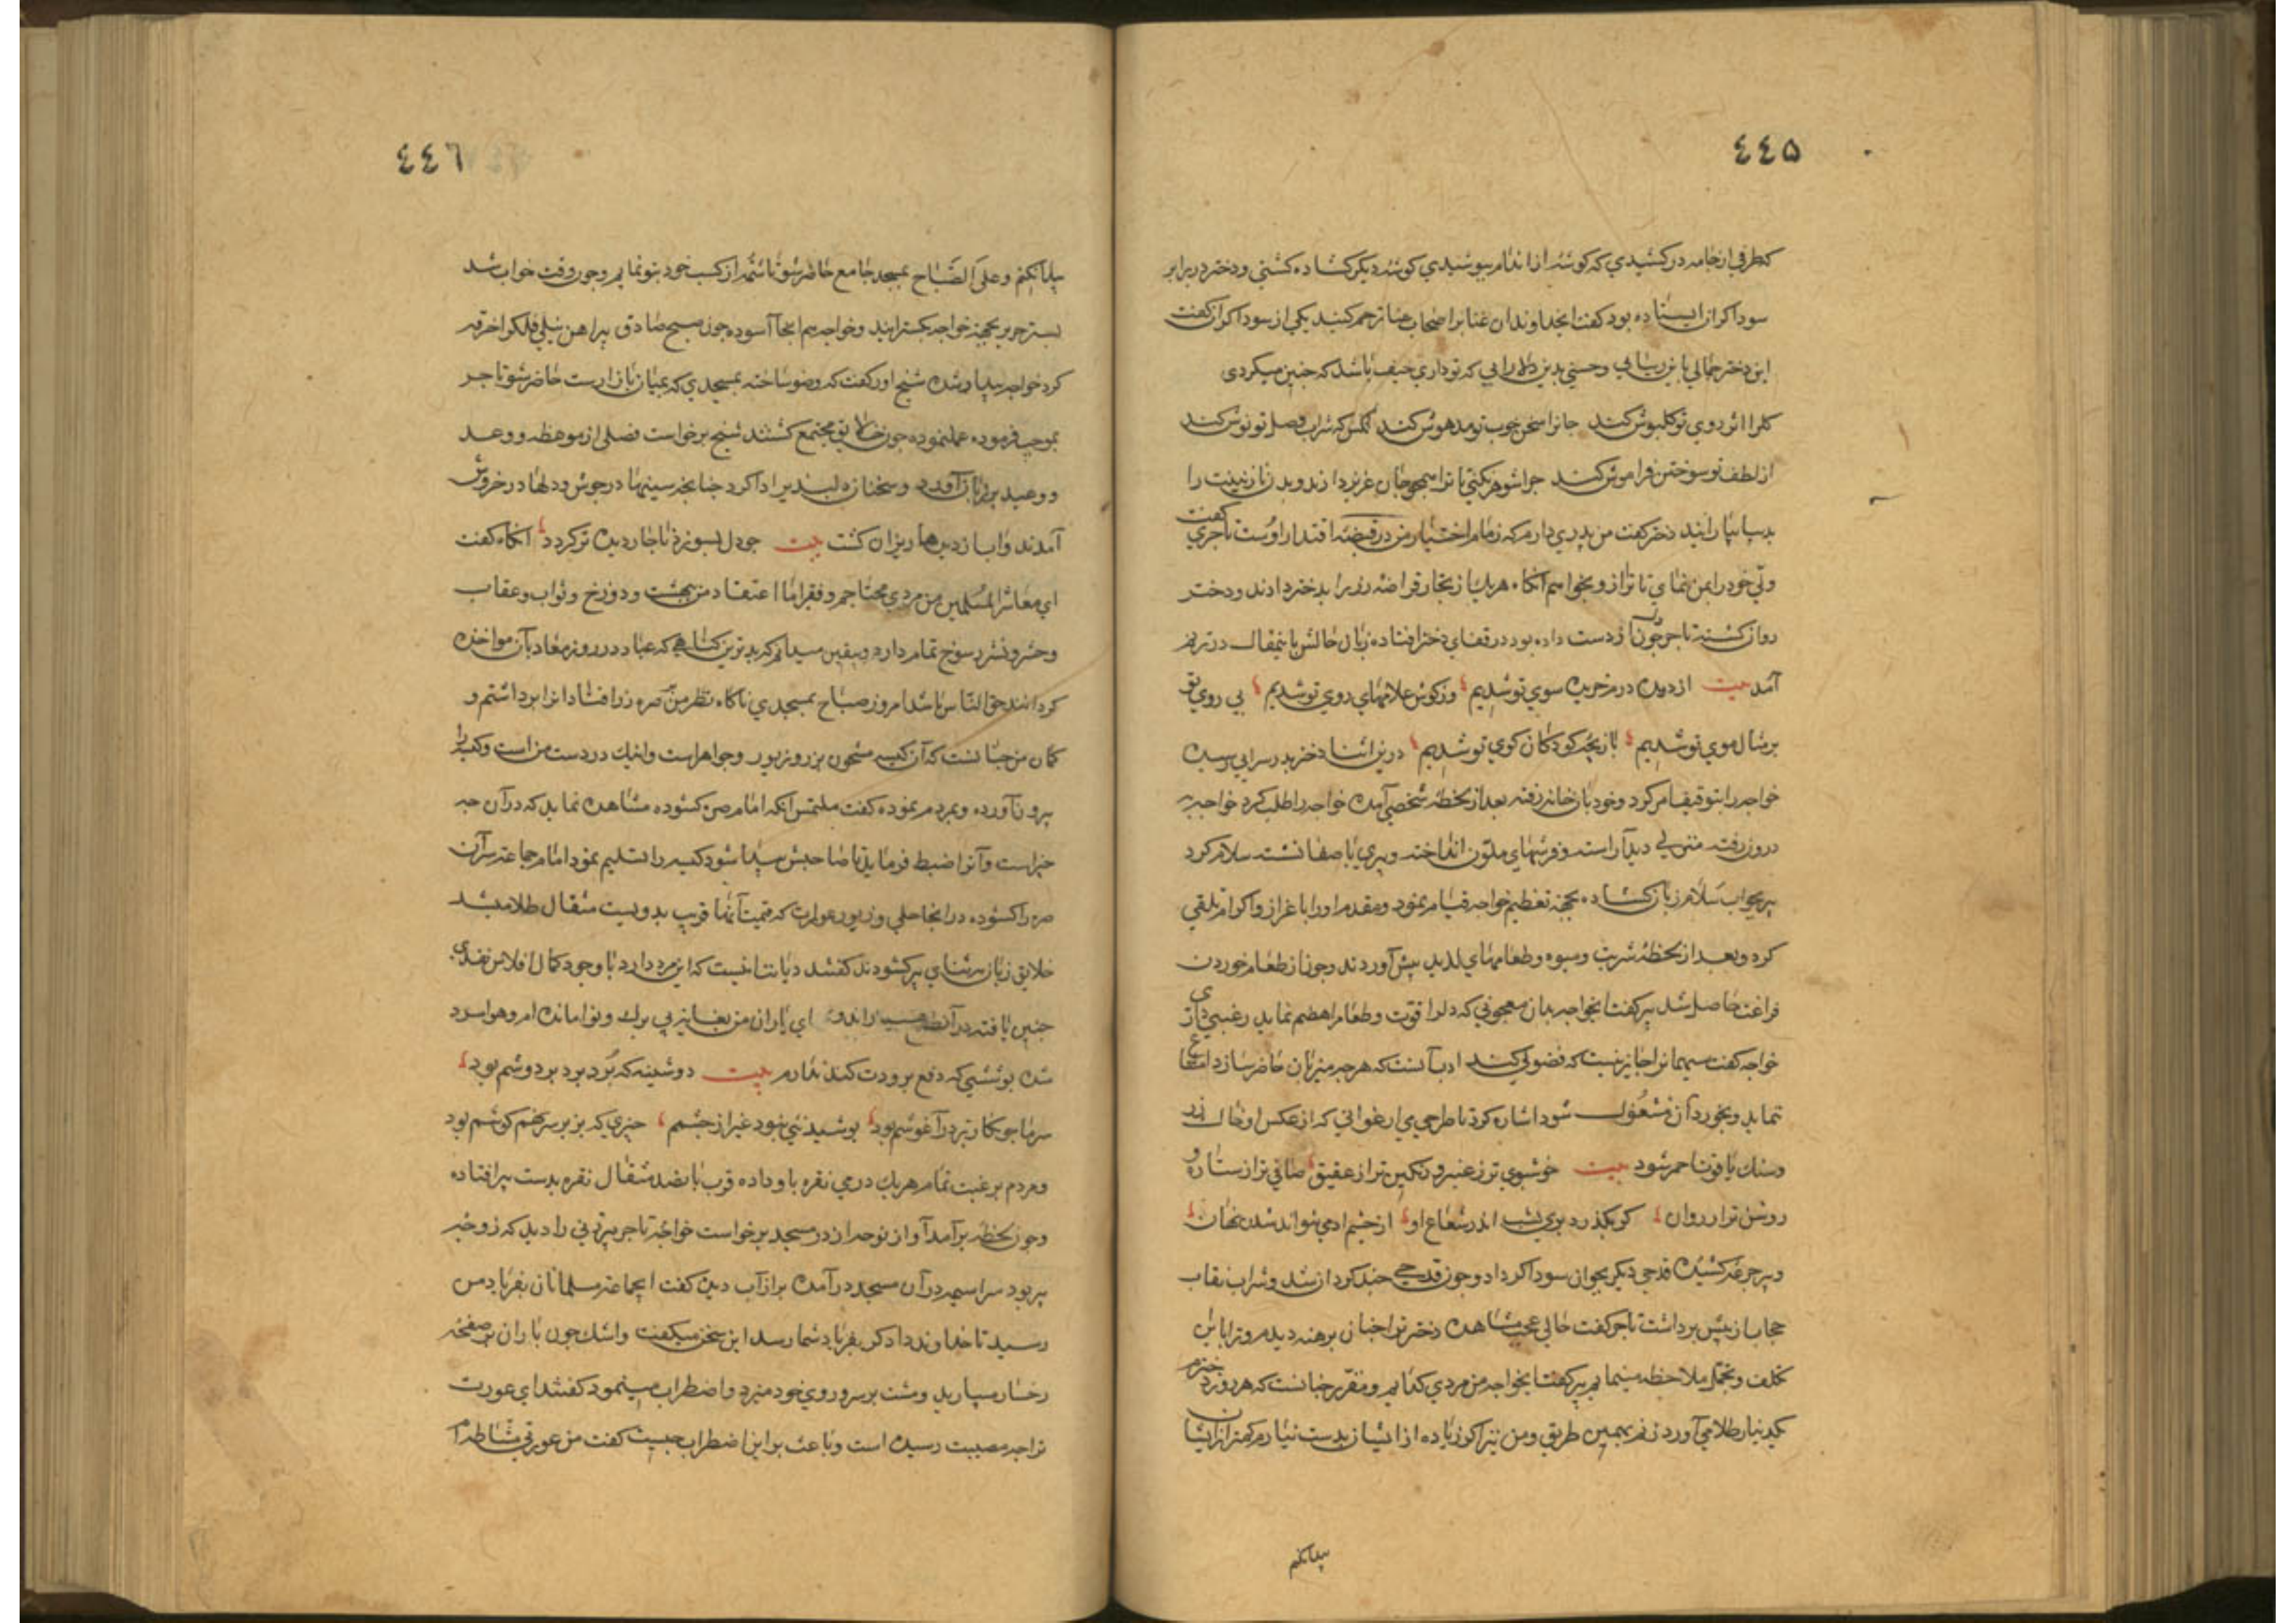 ٤٤۵
کطرفی از جامه در کشیدی که کوشه از اندام بپوشیدی کوشه دیکر کشاده کشتی و دختر در برابر
سوداکران ایستاده بود کفت ایخداوندان غنا بر اصحاب عنا ترحم کنید یکی از سوداکران کفت
این دختر جمالی باین زیبائی و حسنی بدین دلارایی که تو داری حیف باشد که چنین میکردی
کلرا اثر روی تو کلپوش کند جانرا سخن خوب تو مدهوش کند انکس که شراب وصل تو نوش کند
از لطف تو سوختن فراموش کند چرا شوهر نکنی تا ترا همچو جان عزیز دارند و بدن نازنینت را
بدیبا بیارایند دختر کفت من پدری دارم که زمام اختیار من در قبضه اقتدار اوست تاجری کفت
ولی خود را بمن نمای تا ترا ازو بخواهم آنکاه هر یک از تجار قراضه زر را بدختر دادند و دختر
روان کشته تاجر چون از دست داده بود در قفای دختر افتاده زبان حالش باینمقال در ترنم
آمد بیت از دیده درم خریده سوی تو شدیم وز کوش غلامهای روی تو شدیم بی روی تو
بر مثال موی تو شدیم بازیچه کودکان کوی تو شدیم درین اثنا دختر بدر سرایی رسیده
خواجه را بتوقیف امر کرد و خود بان خانه رفته بعد از لحظه شخصی آمده خواجه را طلب کرد خواجه
درون رفته منزلی دید آراسته و فرشهای ملون انداخته و پیری با صفا نشسته سلام کرد
پیر بجواب سلام زبان کشاده بجهة تعظیم خواجه قیام نمود و مقدم او را با عزاز و اکرام تلقی
کرد و بعد از لحظه شربت و میوه و طعامهای لذید پیش آوردند و چون از طعام خوردن
فراغت حاصل شد پیر کفت ایخواجه بدان معجونی که دلرا قوت و طعام را هضم نماید رغبتی داری
خواجه کفت میهمانرا جایز نیست که فضولی کند ادب آنست که هر چه میزبان حاضر سازد
نماید و بخوردن آن مشغول شود اشاره کرد تا صراحی می ارغوانی که از عکس او خاک زر
و سنک یاقوت احمر شود بیت خوشبوی تر ز عنبر و رنکین تر از عقیق صافی تر از ستاره و
روشن تر از روان کر بکذرد پری بشب اندر شعاع او از چشم ادمی نتواند شدن نهان
و پیر جرعه کشیده قدحی دیکر بجوان سوداکر داد و چون قدحی چند کردان شد و شراب نقاب
حجاب از پیش برداشت تاجر کفت حالی عجب مشاهده دختر ترا چنان برهنه دیدم و ترا باین
تکلف و تجمل ملاحظه مینمایم پیر کفت ایخواجه من مردی کدایم و مقرر چنانست که هر روز دخترم
یکدینار طلا می آورد زنم بهمین طریق و من نیز اکر زیاده از ایشان بدست نیارم کمتر از ایشان
پیدا نکنم
٤٤٦
پیدا نکنم و علی الصباح بمسجد جامع حاضر شو تا شمه از کسب خود بتو نمایم و چون وقت خواب شد
بستر حریر بجهة خواجه بکسترانیدند و خواجه هم آنجا آسوده چون صبح صادق پیراهن نیلی فلک را خرقه
کرد خواجه بیدار شده شیخ او را کفت که وضو ساخته بمسجدی که بمیان بازارست حاضر شو تاجر
بموجب فرموده عمل نموده چون خلایق مجتمع کشتند شیخ برخاست فصلی از موعظه و وعد
و وعید بر زبان آورد و سخنان دلپذیر ادا کرد چنانچه سینها در جوش و دلها در خروش
آمدند و آب از دیدها ریزان کشت بیت چو دل بسوزد ناچار دیده تر کردد آنکاه کفت
ای معاشر المسلمین من مردی محتاجم و فقیر اما اعتقاد من ببهشت و دوزخ و ثواب و عقاب
و حشر و نشر رسوخ تمام دارد و یقین میدانم که بدترین کناهی که عباد در روز معاد بآن مواخذه
کردانند حق الناس باشد امروز صباح بمسجدی ناکاه نظر من بر صره زر افتاد آنرا برداشتم و
کمان من چنانست که آن کیسه مشحون بزر و زیور و جواهر است و اینک در دست من است و کیسه را
برون آورده و بمردم نموده کفت ملتمس انکه امام صره کشوده مشاهده نماید که در آن چه
چیز است و آنرا ضبط فرماید تا صاحبش پیدا شود کیسه را تسلیم نمود امام جماعت سر آن
صره را کشوده در آنجا حلی و زیور عورات که قیمت آنها قریب بدویست مثقال طلا میشد
خلایق زبان بثنای پیر کشودند کفتند دیانتیست که این مرد دارد با وجود کمال افلاس نقدی
چنین یافته در آن طمع نکرد ای یاران من بغایت بی برک و نوا مانده ام و هوا سرد
شده پوششی که دفع برودت کند ندارم بیت دوشینه که بُرد بَرد بر دوشم بود
سرما چو نکار تر در آغوشم بود پوشیدنئی نبود غیر از چشمم چیزی که بزیر سر نهم کوشم بود
و مردم برغبت تمام هر یک درمی نقره باو داده قرب پانصد مثقال نقره بدست پیر افتاده
و چون لحظه برآمد آواز نوحه از در مسجد برخواست خواجه تاجر پیر زنی را دید که زوجه
پیر بود سراسیمه در آن مسجد در آمده پر از آب دیده کفت ایجماعت مسلمانان بفریاد من
رسید تا خداوند دادکر بفریاد شما رسد این سخن میکفت و اشک چون باران بر صفحه
رخسار میبارید و مشت بر سر و روی خود میزد و اضطراب مینمود کفتند ای عورت
ترا چه مصیبت رسیده است و باعث بر این اضطراب چیست کفت من عورتی مشاطه ام